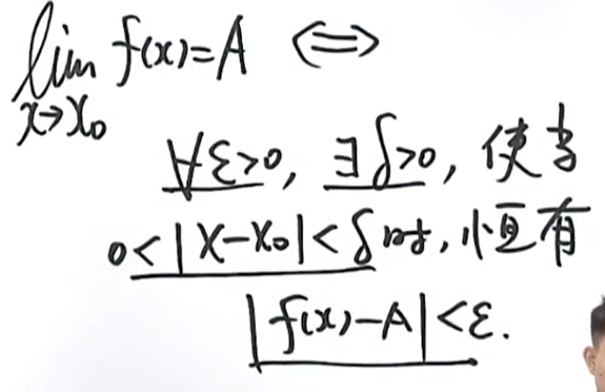 lim f(x)=A ⟺
x→x₀
∀ε>0, ∃δ>0, 使当
0<|x-x₀|<δ时, 恒有
|f(x)-A|<ε.